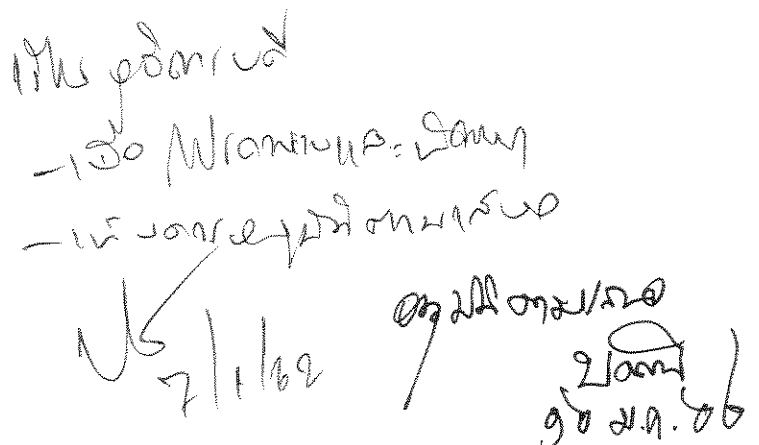 เรียน อธิการบดี
- เพื่อโปรดทราบและพิจารณา
- เห็นควรอนุมัติตามเสนอ
7/1/62
อนุมัติตามเสนอ
ม.ค.